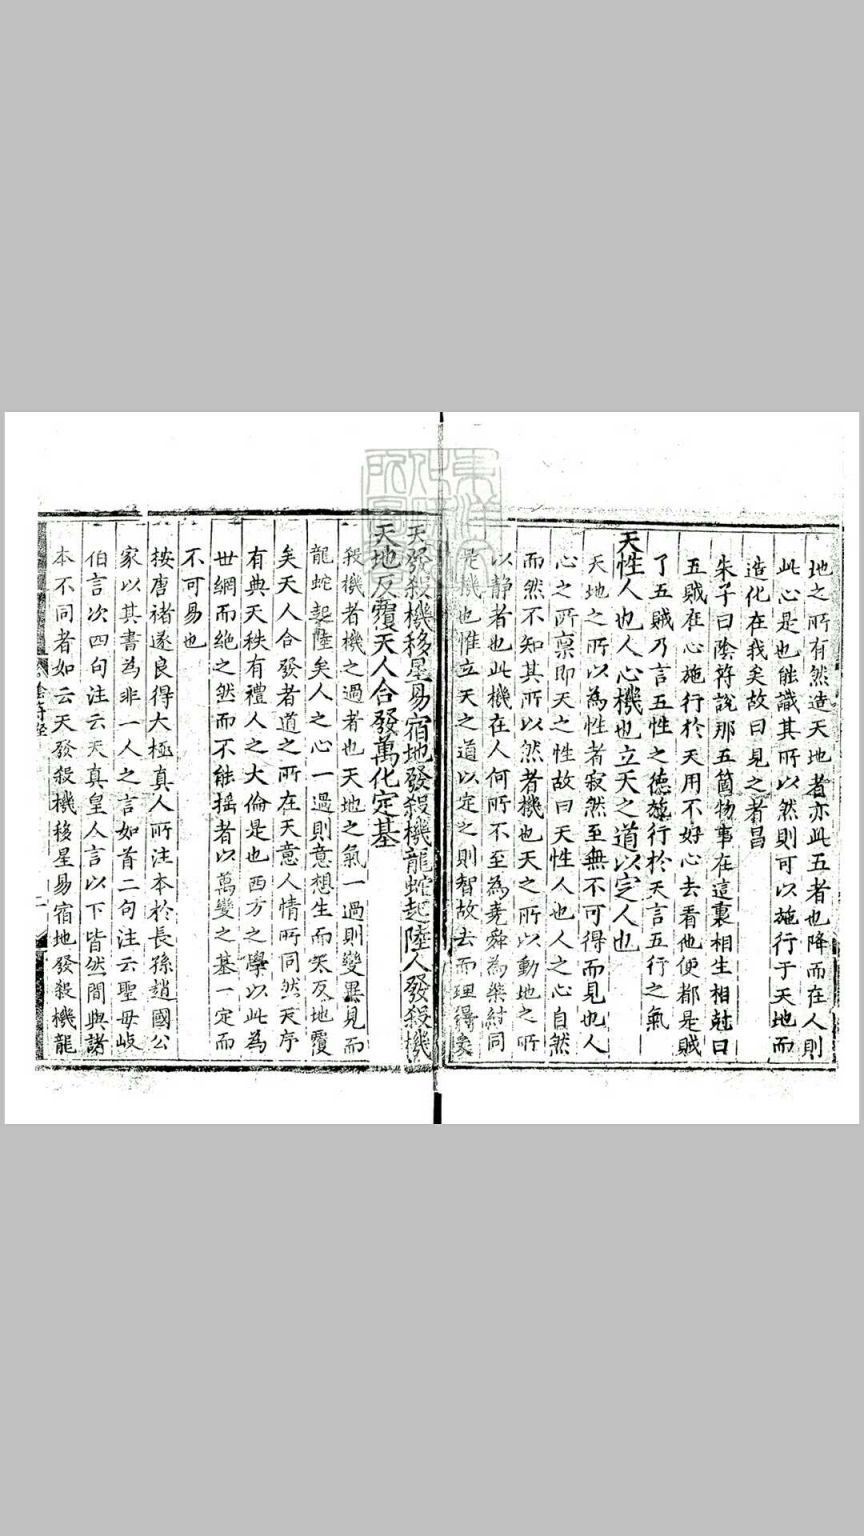 地之所有然造天地者亦此五者也降而在人則
此心是也能識其所以然則可以施行于天地而
造化在我矣故曰見之者昌
朱子曰陰符說那五箇物事在這裏相生相尅曰
五賊在心施行於天用不好心去看他便都是賊
了五賊乃言五性之德施行於天言五行之氣
天性人也人心機也立天之道以定人也
天地之所以為性者寂然至無不可得而見也人
心之所禀即天之性故曰天性人也人之心自然
而然不知其所以然者機也天之所以動地之所
以静者也此機在人何所不至為堯舜為桀紂同
是機也惟立天之道以定之則智故去而理得矣
天發殺機移星易宿地發殺機龍蛇起陸人發殺機
天地反覆天人合發萬化定基
殺機者機之過者也天地之氣一過則變異見而
龍蛇起陸矣人之心一過則意想生而天反地覆
矣天人合發者道之所在天意人情所同然天序
有典天秩有禮人之大倫是也西方之學以此為
世網而絶之然而不能揺者以萬變之基一定而
不可易也
按唐褚遂良得大極真人所注本於長孫趙國公
家以其書為非一人之言如首二句注云聖母岐
伯言次四句注云天真皇人言以下皆然間與諸
本不同者如云天發殺機移星易宿地發殺機龍
陰符經